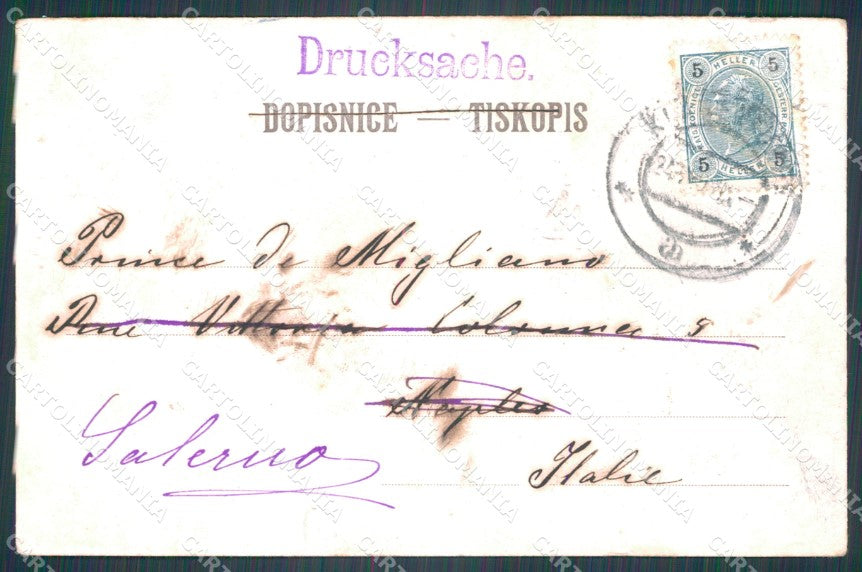 Drucksache.
DOPISNICE — TISKOPIS
5 HELLER 5
5 HELLER 5
Prince de Migliano
Rue Vittoria Colonna 9
Naples
Salerno
Italie
CARTOLINOMANIA